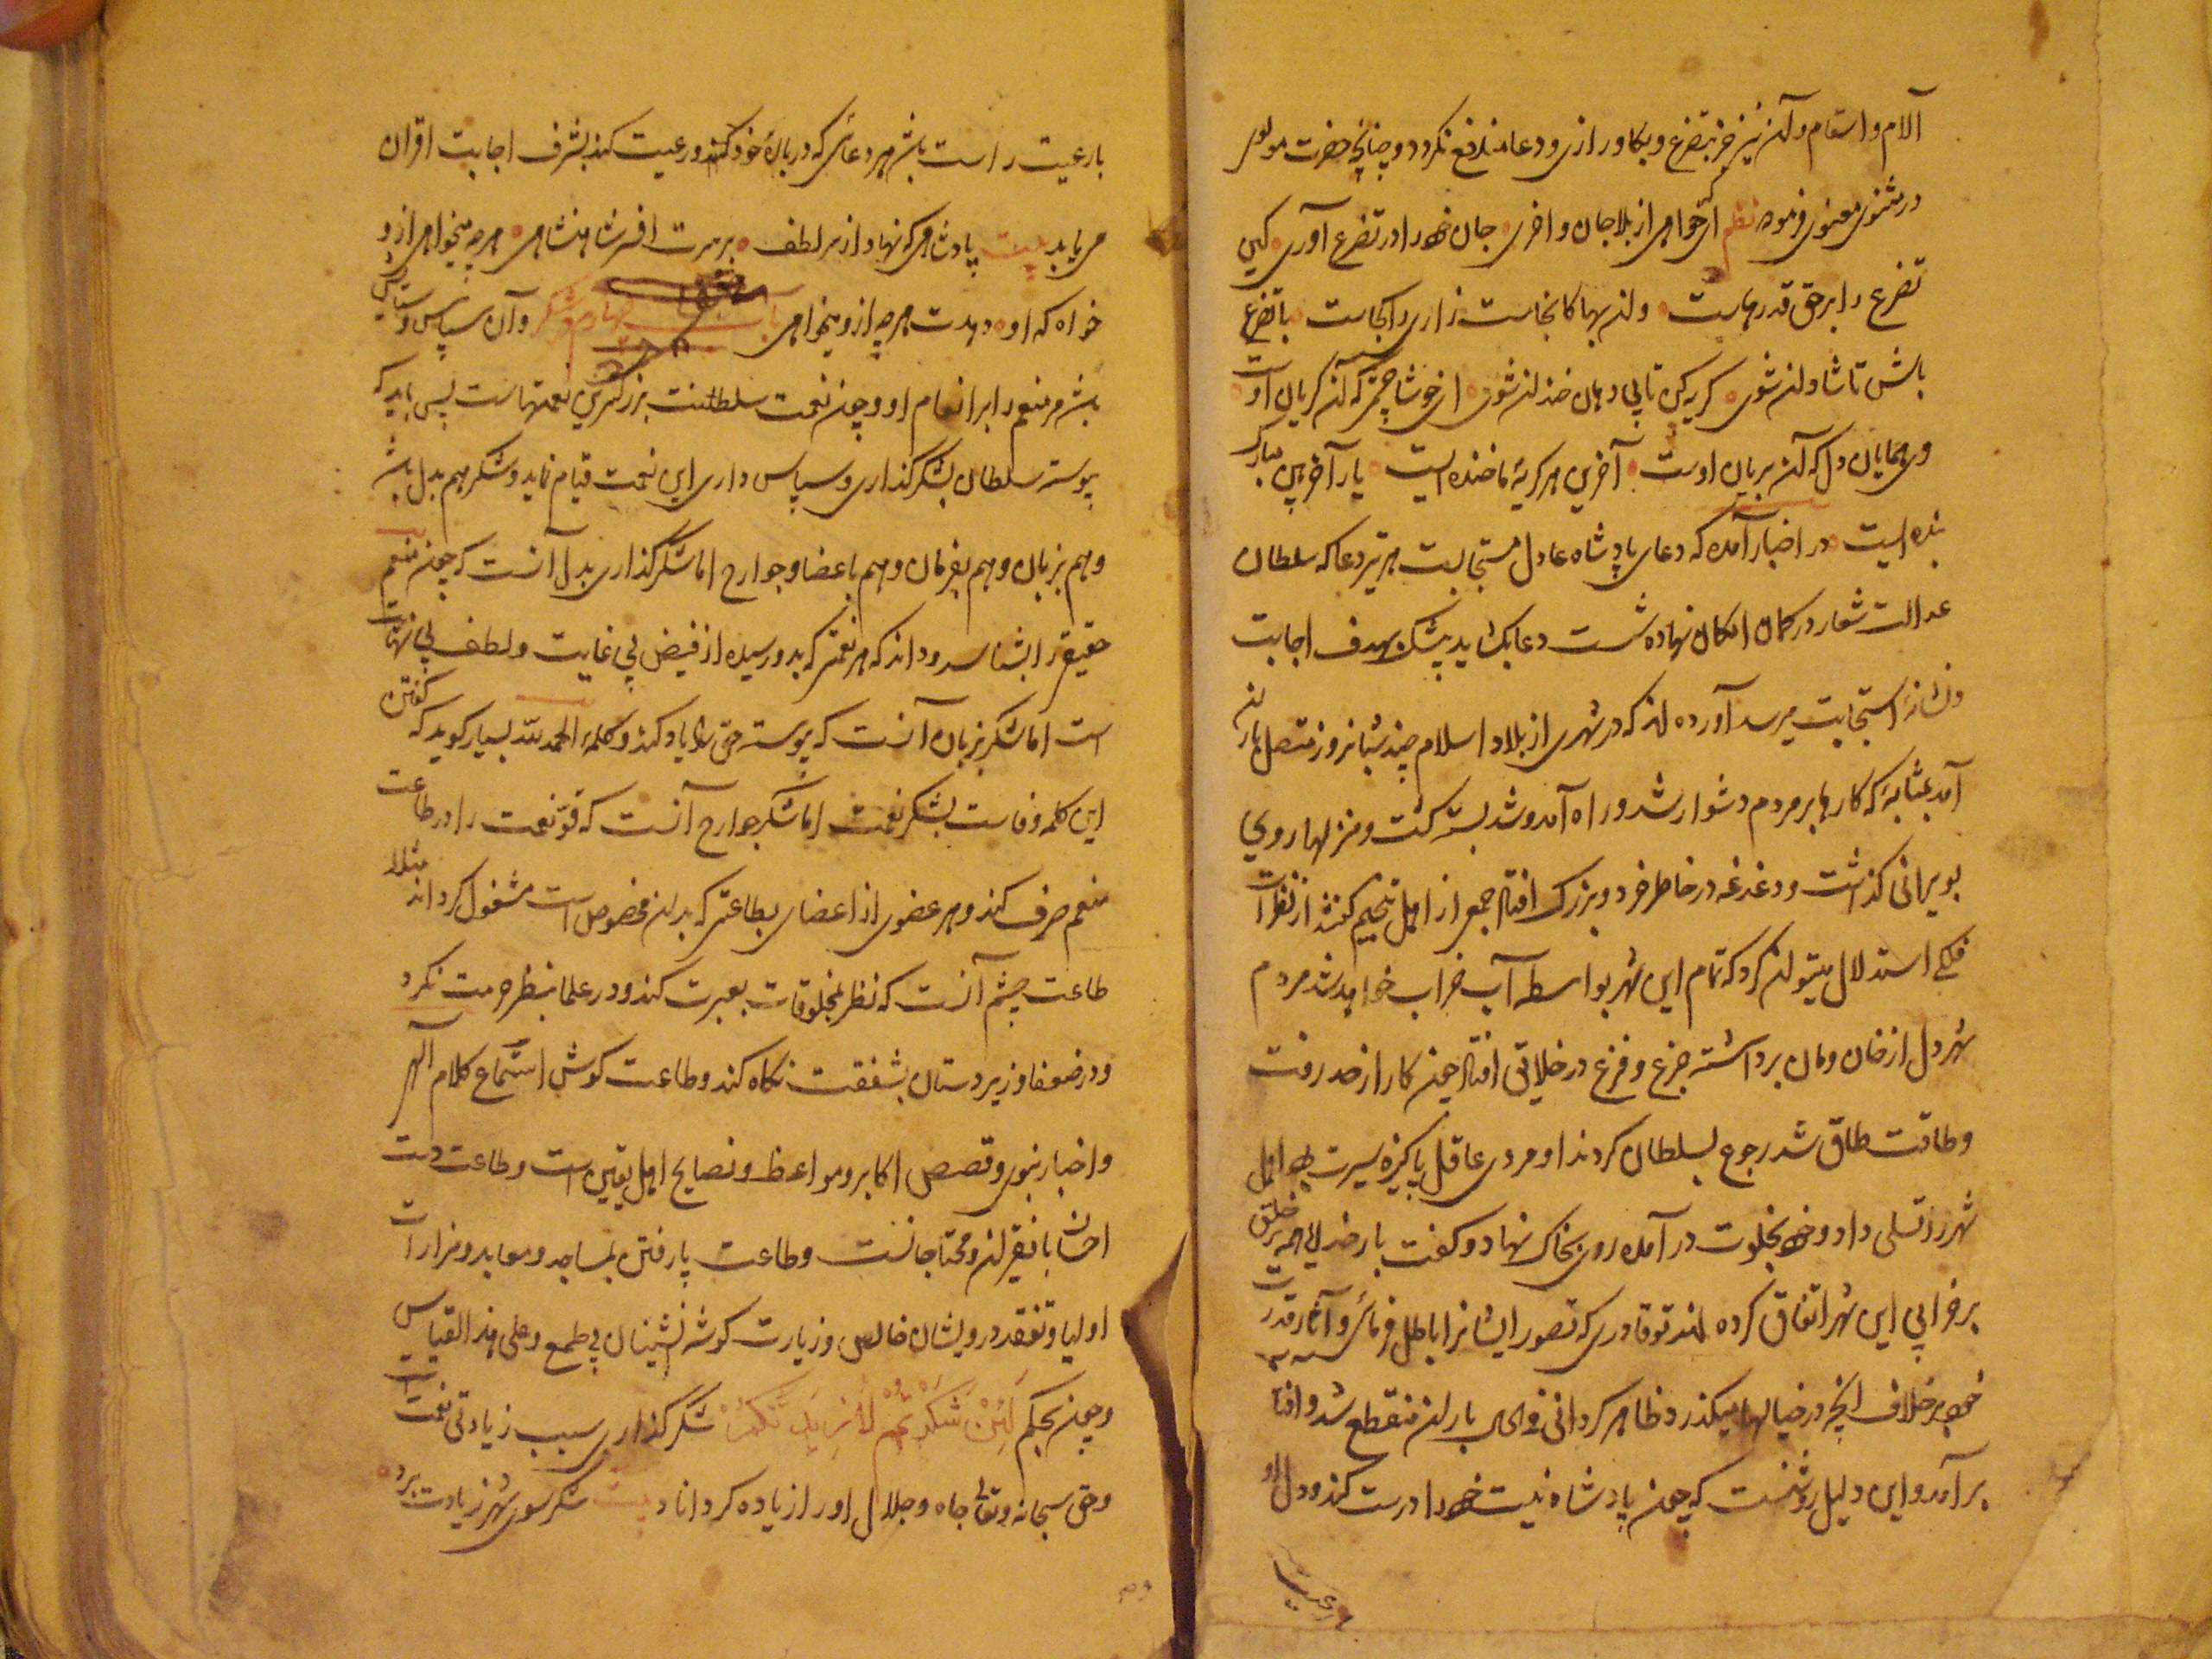 آلام و اسقام و آن نیز جز بتضرع و بکا و رازی و دعا مندفع نکردد و چنانچه حضرت مولوی
در مثنوی معنوی فرموده نظم ای که خواهی از بلا جان واخری جان خود را در تضرع آوری کین
تضرع را بر حق قدرهاست وان بها کانجاست زاری را کجاست با تضرع
باش تا شادان شوی کریه کن تا بی دهان خندان شوی ای خوشا چشمی که آن کریان اوست
وی همایان دل که آن بریان اوست آخرین هر کریه ما خنده ایست یار آخر بین مبارک
بنده ایست در اخبار آمده که دعای پادشاه عادل مستجابست هر تیر دعا که سلطان
عدالت شعار در کمان امکان نهاده شست دعا بکشاید بیشک بهدف اجابت
و نشانهٔ استجابت میرسد آورده اند که در شهری از بلاد اسلام چند شبانروز متصل باران
آمد بمثابهٔ که کارها بر مردم دشوار شد و راه آمد و شد بسته کشت و منزلها روی
بویرانی کذاشت و دغدغه در خاطر خرد و بزرک افتاد جمعی از اهل تنجیم کفتند از نظرات
فلکی استدلال میتوان کرد که تمام این شهر بواسطهٔ آب خراب خواهد شد مردم
شهر دل از خان و مان برداشته جزع و فزع در خلایق افتاد چون کار از حد رفت
و طاقت طاق شد رجوع بسلطان کردند او مردی عاقل پاکیزه سیرت بود اهل
شهر را تسلی داد و خود بخلوت در آمده روی بخاک نهاد و کفت بار خدایا همه خلق
بر خرابی این شهر اتفاق کرده اند تو قادری که تصور ایشانرا باطل فرمائی و آثار قدرت
خود بر خلاف آنچه در خیالها میکذرد ظاهر کردانی فی الحال باران منقطع شد و آفتاب
بر آمد و این دلیل روشنست که چون پادشاه نیت خود را درست کند و دل او
با رعیت
با رعیت راست باشد هر دعائی که در بارهٔ خود کند و رعیت کند بشرف اجابت اقران
می یابد بیت پادشاهی که نهاد از سر لطف بر سرت افسر شاهنشاهی هر چه میخواهی ازو
خواه که او دهدت هر چه ازو میخواهی باب چهارم در شکر و آن سپاس و ستایش
باشد مر منعم را بر انعام او و چون نعمت سلطنت بزرکترین نعمتهاست پس باید که
پیوسته سلطان بشکر کذاری و سپاس داری این نعمت قیام نماید و شکر هم بدل باشد
و هم بزبان و هم بفرمان و هم باعضا و جوارح اما شکر کذاری بدل آنست که چون منعم
حقیقی را بشناسد و داند که هر نعمتی که بدو رسیده از فیض بی غایت و لطف بی نهایت
است اما شکر بزبان آنست که پیوسته حق را یاد کند و کلمهٔ الحمد لله بسیار کوید که کفتن
این کلمه وفاست بشکر نعمت اما شکر جوارح آنست که قوّت نعمت را در طاعت
منعم صرف کند و هر عضوی از اعضای بطاعتی که بدان مخصوص است مشغول کرداند مثلا
طاعت چشم آنست که نظر بمخلوقات بعبرت کند و در علما بنظر حرمت نکرد
و در ضعفا و زیردستان بشفقت نکاه کند و طاعت کوش استماع کلام الهی
و اخبار نبوی و قصص اکابر و مواعظ و نصایح اهل یقین است و طاعت دست
احسان با فقیران و محتاجانست و طاعت پا رفتن بمساجد و معابد و مزارات
اولیا و تفقد درویشان خالص و زیارت کوشه نشینان بی طمع و علی هذا القیاس
و چون بحکم لَئِنْ شَكَرْتُمْ لَأَزِيدَنَّكُمْ شکر کذاری سبب زیادتی نعمت است
و حق سبحانه و تعالی جاه و جلال او را زیاده کرداناد بیت شکر سوی شهر زیادت برد